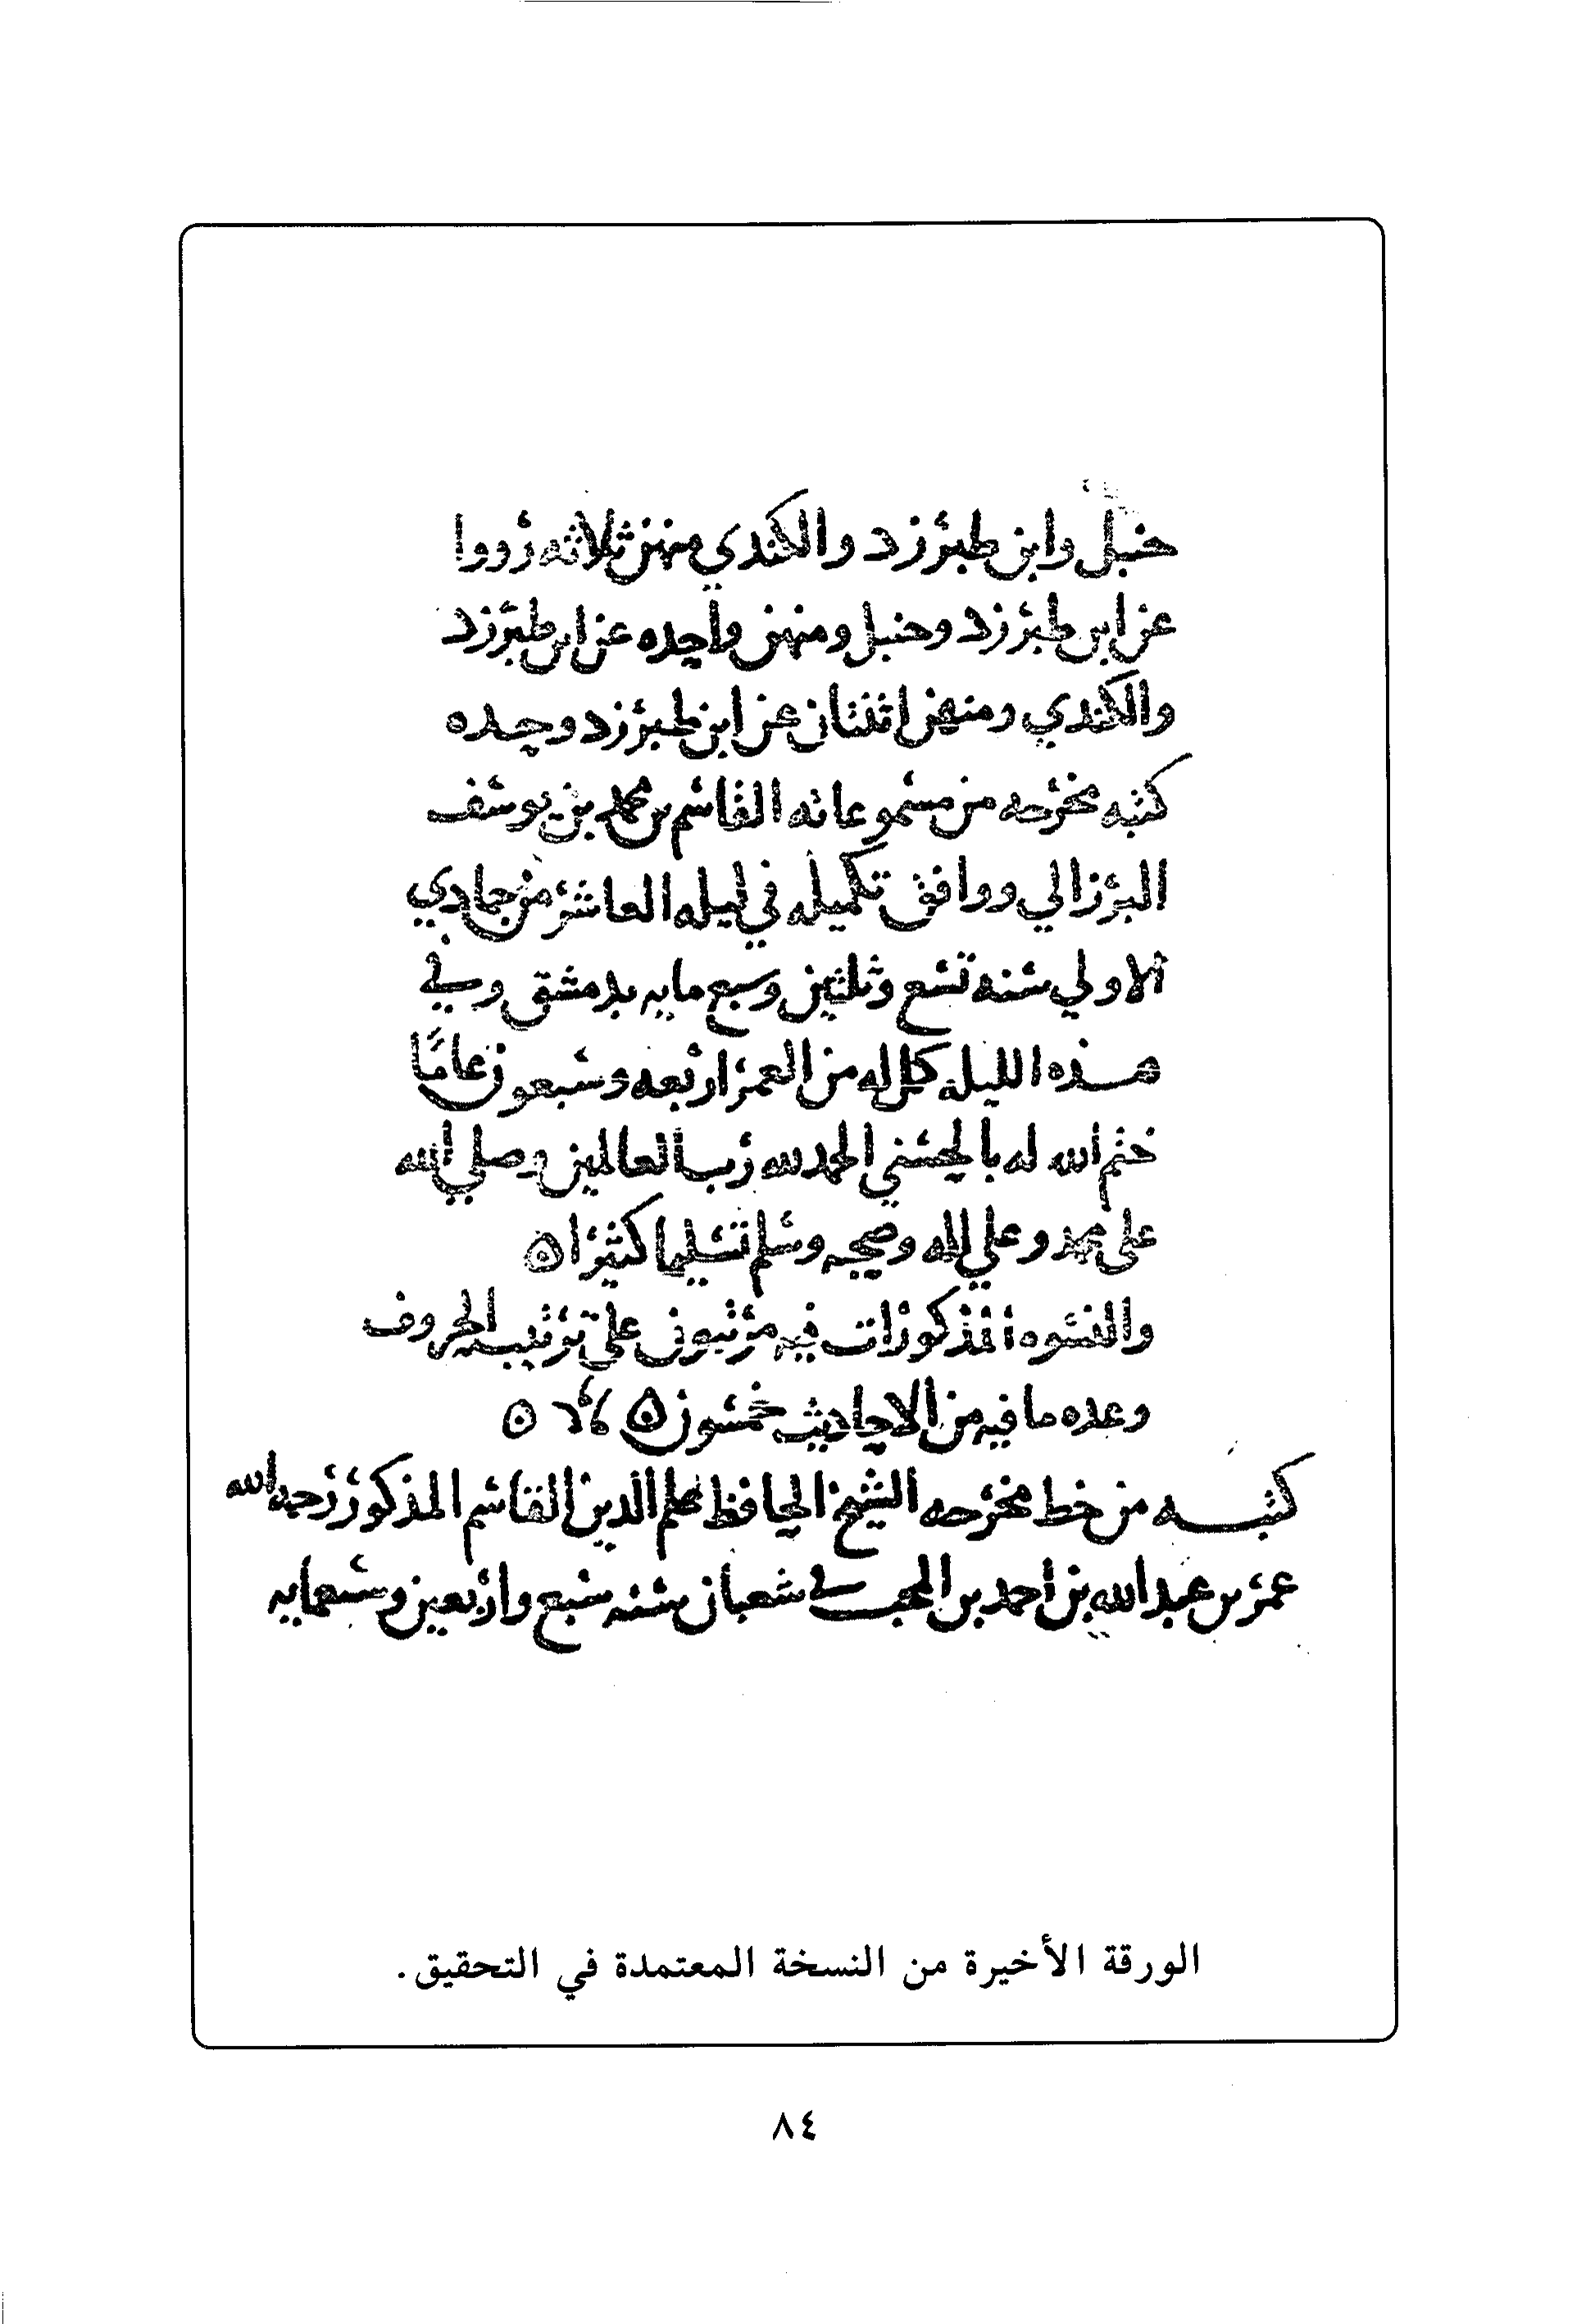 حنبل وابن طبرزد والكندي منهن ثلاثه رووا
عن ابن طبرزد وحنبل ومنهن واحده عن ابن طبرزد
والكندي ومنهن اثنتان عن ابن طبرزد وحده
كتبه مخرجه من مسموعاته القاسم بن محمد بن يوسف
البرزالي ووافق تكميله في ليله العاشر من جمادي
الاولي سنه تسع وثلثين وسبع مايه بدمشق وفي
هذه الليله كمل له من العمر اربعه وسبعون عامًا
ختم الله له بالحسني الحمد لله رب العالمين وصلي الله
على محمد وعلي اله وصحبه وسلم تسليما كثيرا ه
والنسوه المذكورات فيه مرتبون على ترتيب الحروف
وعده ما فيه من الاحاديث خمسون ه ه
كتبه من خط مخرجه الشيخ الحافظ علم الدين القاسم المذكور رحمه الله
عمر بن عبد الله بن احمد بن المحب في شعبان سنه سبع واربعين وسبعمايه
الورقة الأخيرة من النسخة المعتمدة في التحقيق.
٨٤